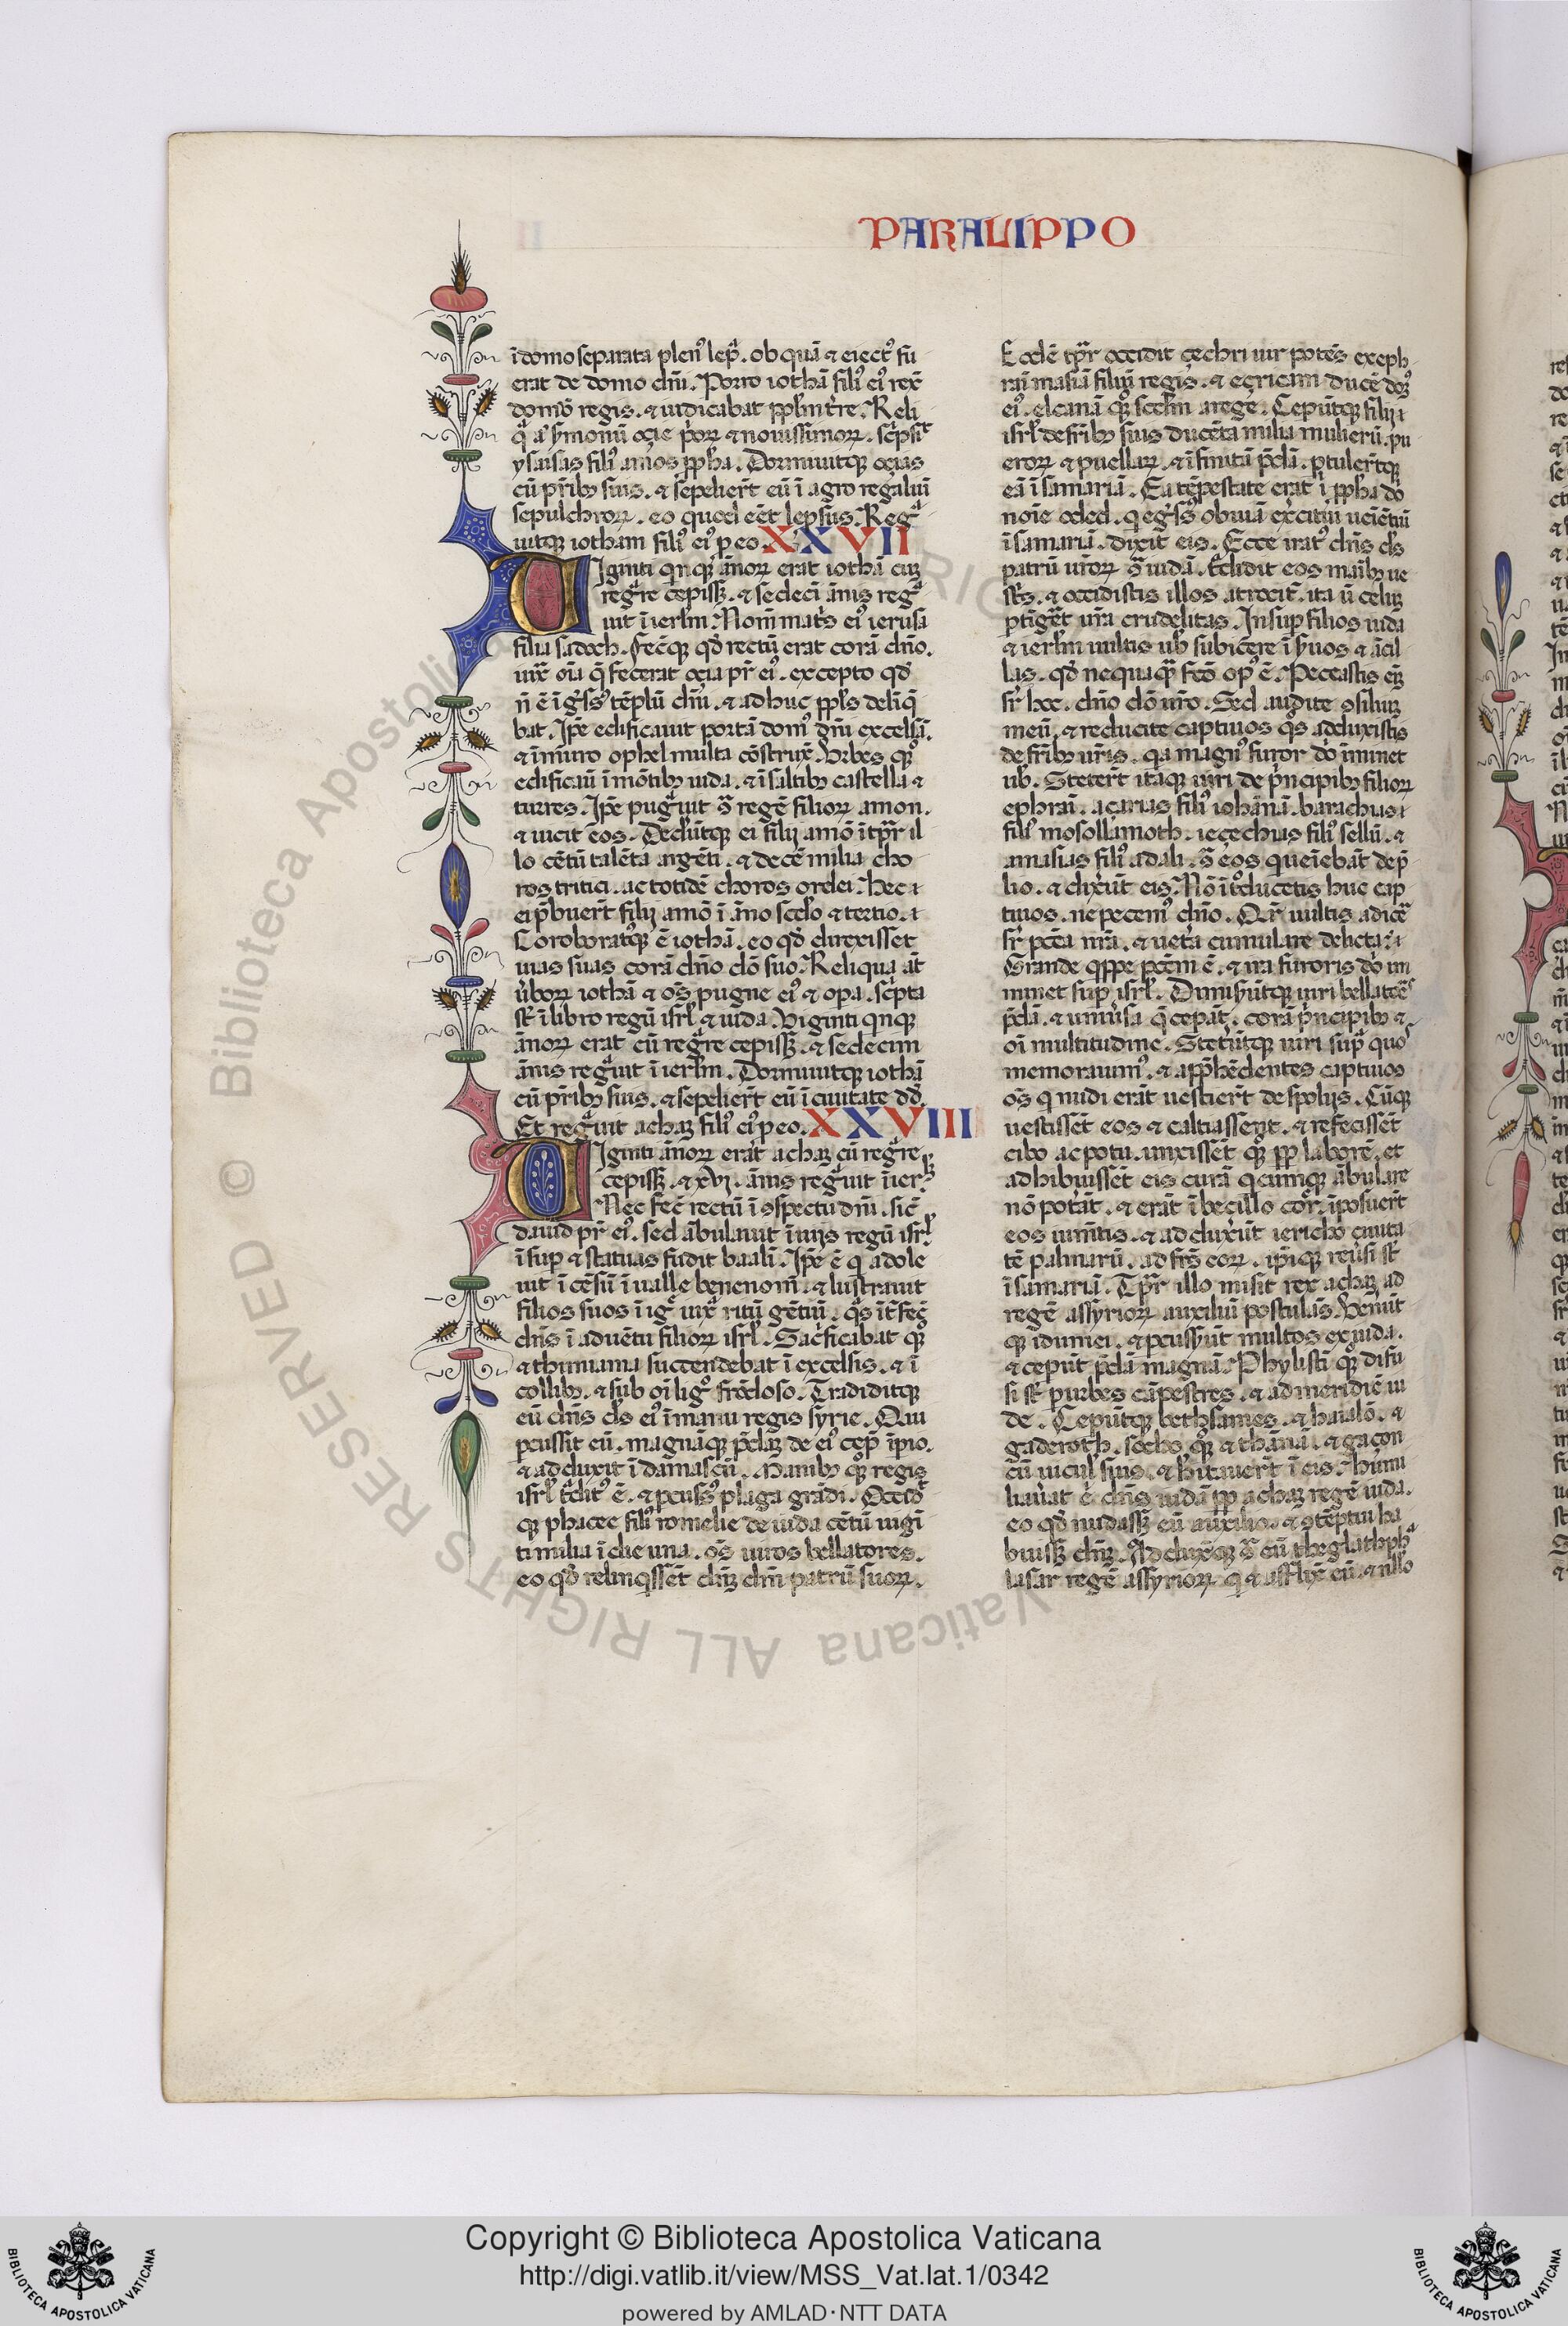 PARALIPPO
ī domo separata plen⁹ lep̄. ob quā ⁊ eiect⁹ fu
erat de domo dn̄i. Porro iothā fili⁹ ei⁹ rex̄
domū regis. ⁊ iudicabat pplm̄ tr̄e. Reli
q̄ aͬ s̄monū oçie p̄orꝝ ⁊ nouissimorꝝ. sc̄psit
ysaias fili⁹ amos ꝓpha. Dormiuitꝗ oçias
cū pr̄ibꝰ suis. ⁊ sepelier̄t eū ī agro regaliū
sepulchrorꝝ. eo quod eēt lepsus. Reg
uitꝗ iotham fili⁹ ei⁹ p eo. XXVII
Viginti qnꝗ ānorꝝ erat iothā cuꝫ
regͣre cepissꝫ. ⁊ sedecī ānis regͣ
uit ī ierlm̄. Nom̄ mat̄s ei⁹ ierusa
filia sadoch. Fecꝗ qd̄ rectū erat corā dn̄o.
iuxͣ oīa q̄ fecerat oçia pr̄ ei⁹. excepto qd̄
n̄ ē īgͬs⁹ tēplū dn̄i. ⁊ adhuc ppl̄s delīq̄
bat. Ip̄e edificauit portā dom⁹ dn̄i excelsā.
⁊ ī muro ophel multa cōstruxͭ. Vrbes ꝗ⁹
edificauī ī mōtibꝰ iuda. ⁊ ī saltibꝰ castella ⁊
turres. Ip̄e pugͣuit 9ͣ regē filiorꝝ amon.
⁊ uicit eos. Dedūtꝗ ei filij amō ī tp̄r il
lo cētū talēta argēti. ⁊ decē milia cho
ros tritici. ac totidē choros ordei. Hec
ei p̄buer̄t filij amō ī āno scd̄o ⁊ tertio.
Coroboratꝗ⁹ ē iothā. eo qd̄ direxisset
uias suas corā dn̄o dō suo. Reliqua at̄
ūborꝝ iothā ⁊ oēs pugne ei⁹ ⁊ opa. sc̄pta
st̄ ī libro regū isrl̄ ⁊ iuda. Viginti qnꝗ
ānorꝝ erat cū regͣre cepissꝫ. ⁊ sedecim
ānis regͣuit ī ierlm̄. Dormiuitꝗ iothā
cū pr̄ibꝰ suis. ⁊ sepelier̄t eū ī ciuitate dd̄.
Et regͣuit achaꝫ fili⁹ ei⁹ p eo. XXVIII
Viginti ānorꝝ erat achaꝫ cū regͣre
cepissꝫ. ⁊ xvj. ānis regͣuit ī ierlꝫ.
Nec fec̄ rectū ī 9spectu dn̄i. sic̄
dauid pr̄ ei⁹. sed ābulauit ī uijs regū isrl̄.
ī sup ⁊ statuas fudit baalī. Ip̄e ē q adole
uit ī cēsū ī ualle benenom̄. ⁊ lustrauit
filios suos ī igͤ iuxͣ ritū gētiū. q̄s īt̄fec̄
dn̄s ī aduētu filiorꝝ isrl̄. Sacͬficabat ꝗ⁹
⁊ thimiama succendebat ī excelsis. ⁊ ī
collibꝰ. ⁊ sub oī lig⁰ frōdoso. Tradiditꝗ
eū dn̄s ds̄ ei⁹ ī manu regis syrie. Qui
pcussit eū. magnāꝗ p̄daꝫ de ei⁹ cep̄ īpio.
⁊ adduxit ī damascū. Manibꝰ ꝗ⁹ regis
isrl̄ tͣdit⁹ ē. ⁊ pcuss⁹ plaga grādi. Occid̄
ꝗ phacee fili⁹ romelie de iuda cētū uigī
ti milia ī die una. oēs uiros bellatores.
eo qd̄ reliqssēt dn̄ꝫ dm̄ patrū suorꝝ.
Eodē tp̄r occidit çechri uir potēs ex eph
raī masiā filiū regis. ⁊ eçricam ducē dom⁹
ei⁹. elcanā ꝗ⁹ scd̄m a rege. Ceperūtꝗ filij
isrl̄ de fr̄ibꝰ suis ducēta milia mulierū. pu
erorꝝ ⁊ puellarꝝ. ⁊ īfinitā p̄dā. ptuler̄tꝗ
eā ī samariā. Ea tēpestate erat ī ꝓpha dō
noīe oded. q egͬs⁹ obuiā exercitui ueiētiū
ī samariā. dixit eis. Ecce irat⁹ dn̄s ds̄
patrū urōrꝝ 9ͣ iudā. tͣdidit eos maībꝰ ue
str̄s. ⁊ occidistis illos atrociť. ita ū celuꝫ
ptīgēt ura crudelitas. Insup filios iuda
⁊ ierlm̄ uultis ub̄ subicere ī s̄uos ⁊ ācil
las. qd̄ nequaqͣ̄ fcō op⁹ ē. Peccastis eīꝫ
sr̄ hoc. dn̄o dō uro. Sed audite 9siliuꝫ
meū. ⁊ reducite captiuos q̄s adduxistis
de fr̄ibꝰ uris. qa magn⁹ furor dō īminet
ub̄. Steter̄t itaꝗ uiri de p̄ncipibꝰ filiorꝝ
ephraī. açarias fili⁹ iohānā. barachias
fili⁹ mosollamoth. ieçechias fili⁹ sellū. ⁊
amasias fili⁹ adali. 9ͣ eos qui ueniebāt de p̄
lio. ⁊ dixūt eis. Nō ītͦducetis huc cap
tiuos. ne peccem⁹ dn̄o. Qr̄ uultis adice
sr̄ pctā nr̄a. ⁊ uetͣa cumulare delicta.
Grande qppe pctm̄ ē. ⁊ ira furoris dō im
minet sup isrl̄. Dimis̄ūtꝗ uiri bellatoēs
p̄dā. ⁊ uniūsa q̄ cepāt. corā p̄ncipibꝰ ⁊
oī multitudine. Stetūtꝗ uiri supͣ quos
memorauim⁹. ⁊ app̄hēdentes captiuos
oēs q nudi erāt uestier̄t de spolijs. Cūꝗ
uestissēt eos ⁊ caltiassent. ⁊ refecissēt
cibo ac potu. unxissēt ꝗ⁹ pp laborē. et
adhibuissēt eis curā qcumꝗ ābulare
nō potͣāt. ⁊ erāt ībecillo corͬ. īposuer̄t
eos iumētis. ⁊ adduxūt iericho ciuita
tē palmarū. ad fr̄s eorꝝ. ip̄iꝗ reūsi st̄
ī samariā. Tp̄r illo misit rex achaꝫ ad
regē assyriorꝝ auxiliū postulās. Venūt
ꝗ idumei. ⁊ pcuss̄ūt multos ex iuda.
⁊ cepūt p̄dā magnā. Phylistī ꝗ⁹ difu
si st̄ p urbes cāpestres. ⁊ ad meridiē iu
de. Cepūtꝗ bethsames. ⁊ haialō. ⁊
gaderoth. socho ꝗ⁹ ⁊ thānā. ⁊ gaçon
cū uicul̄ suis. ⁊ hītauer̄t ī eis. Humi
liauat ē dn̄s iudā pp achaꝫ regē iuda.
eo qd̄ nudassꝫ eū auxilio. ⁊ 9tēptui ha
buissꝫ dn̄ꝫ. Adduxitꝗ 9ͣ eū theglathph
lasar regē assyriorꝝ q ⁊ afflix̄ eū. ⁊ nullo
Copyright © Biblioteca Apostolica Vaticana
http://digi.vatlib.it/view/MSS_Vat.lat.1/0342
powered by AMLAD·NTT DATA
BIBLIOTECA APOSTOLICA VATICANA
BIBLIOTECA APOSTOLICA VATICANA